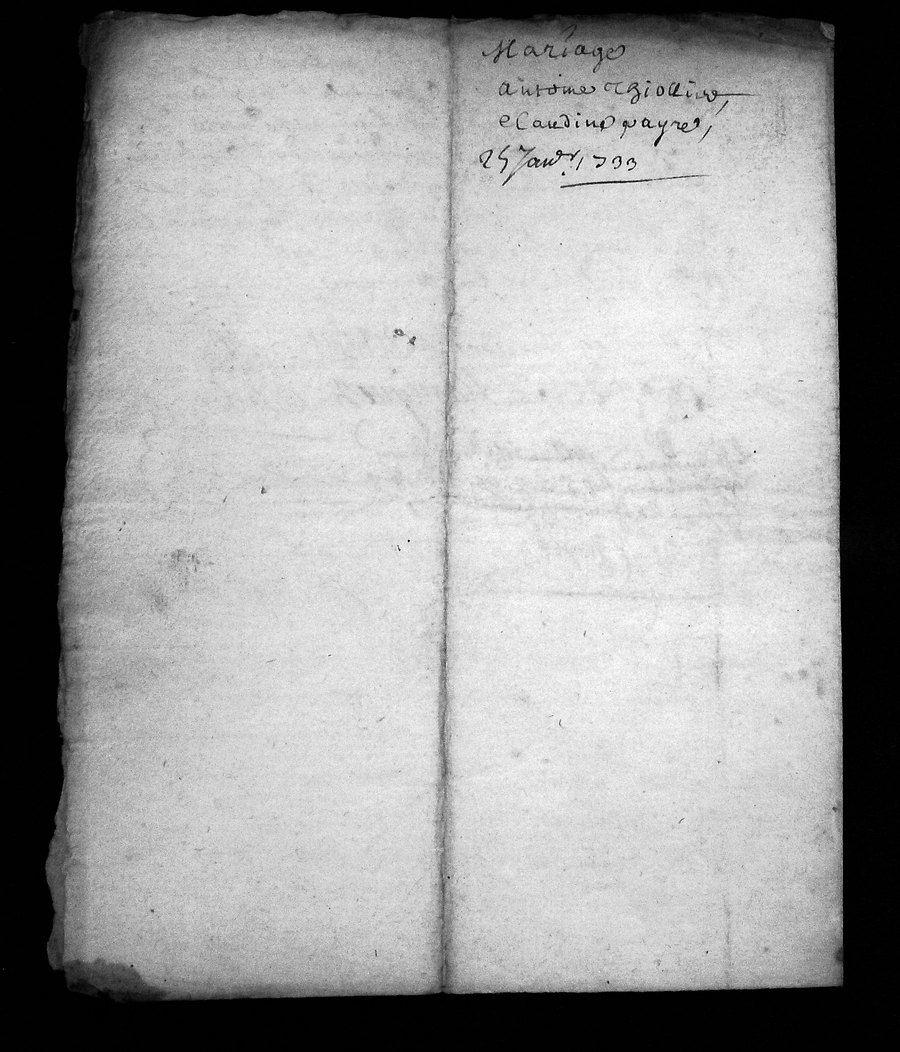 Mariage
antoine Thiollier,
Claudine payre,
25 Janvr, 1733